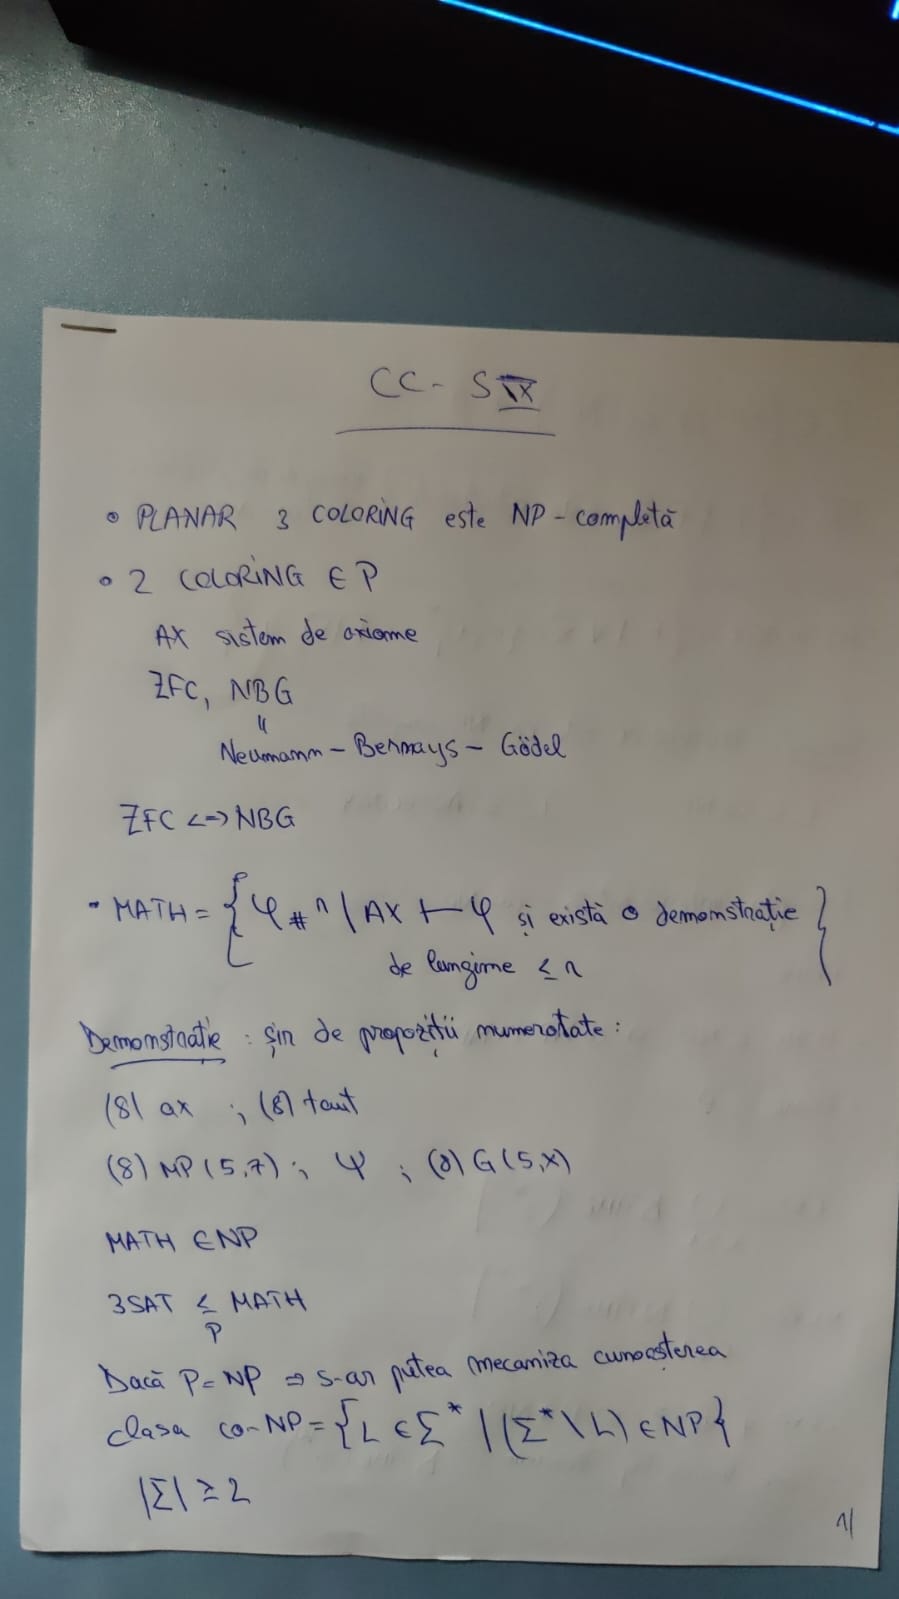 CC - S IX
• PLANAR 3 COLORING este NP-completă
• 2 COLORING ∈ P
AX sistem de axiome
ZFC, NBG
=
Neumann - Bernays - Gödel
ZFC <=> NBG
• MATH = { φ # ⁿ | AX ⊢ φ și există o demonstrație
de lungime ≤ n }
Demonstrație : șir de propoziții numerotate :
(8) ax ; (8) taut
(8) MP (5,7) ; ψ ; (8) G (5,x)
MATH ∈ NP
3SAT ≤ MATH
P
Dacă P = NP ⇒ s-ar putea mecaniza cunoașterea
clasa co-NP = { L ∈ Σ* | (Σ* \ L) ∈ NP }
|Σ| ≥ 2
1/